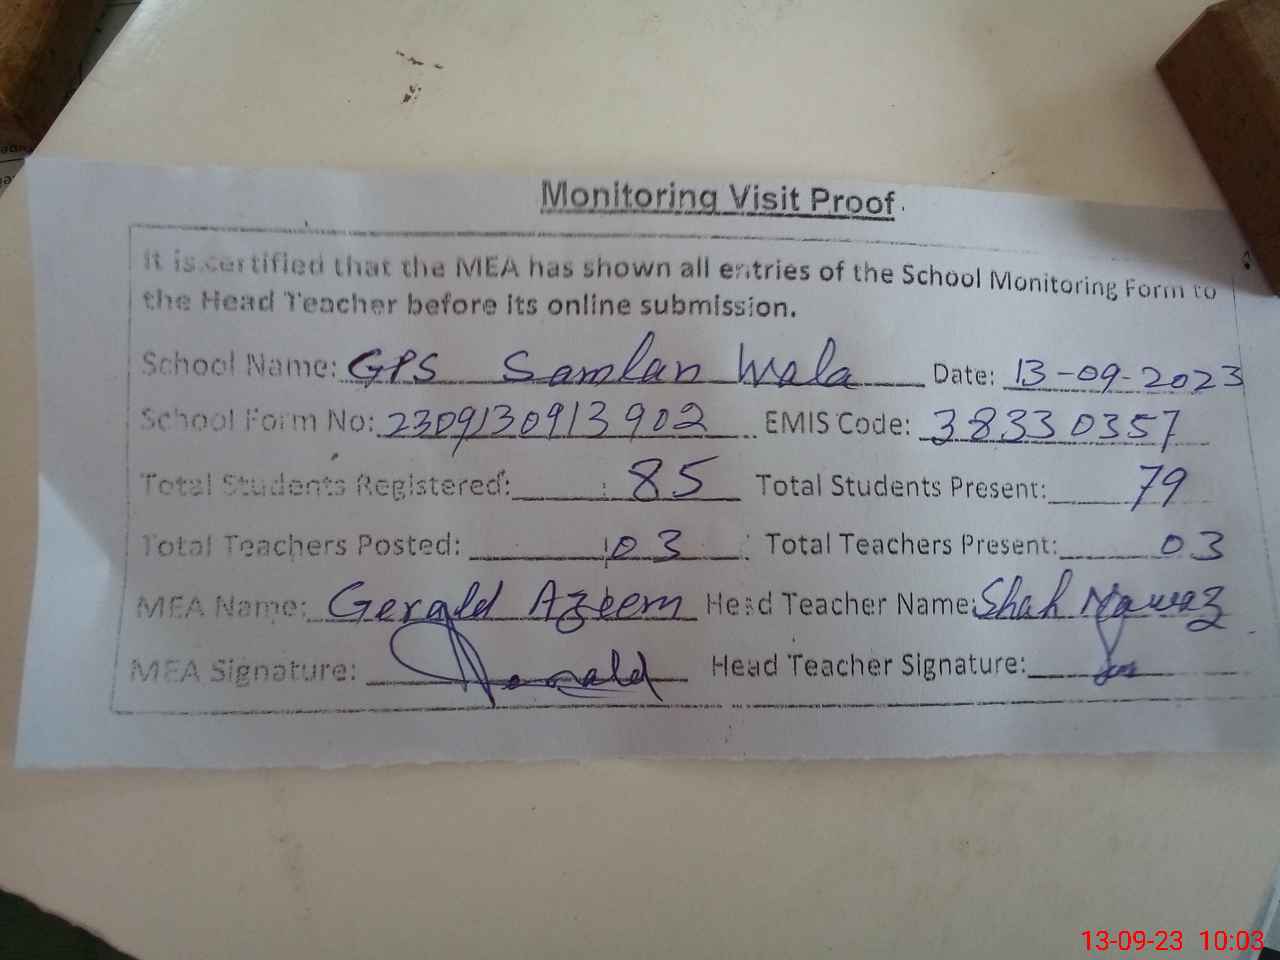 Monitoring Visit Proof
It is certified that the MEA has shown all entries of the School Monitoring Form to
the Head Teacher before its online submission.
School Name: GPS Samlan Wala Date: 13-09-2023
School Form No: 2309130913902 EMIS Code: 38330357
Total Students Registered: 85 Total Students Present: 79
Total Teachers Posted: 03 Total Teachers Present: 03
MEA Name: Gerald Azeem Head Teacher Name: Shah Nawaz
MEA Signature: Head Teacher Signature:
13-09-23 10:03